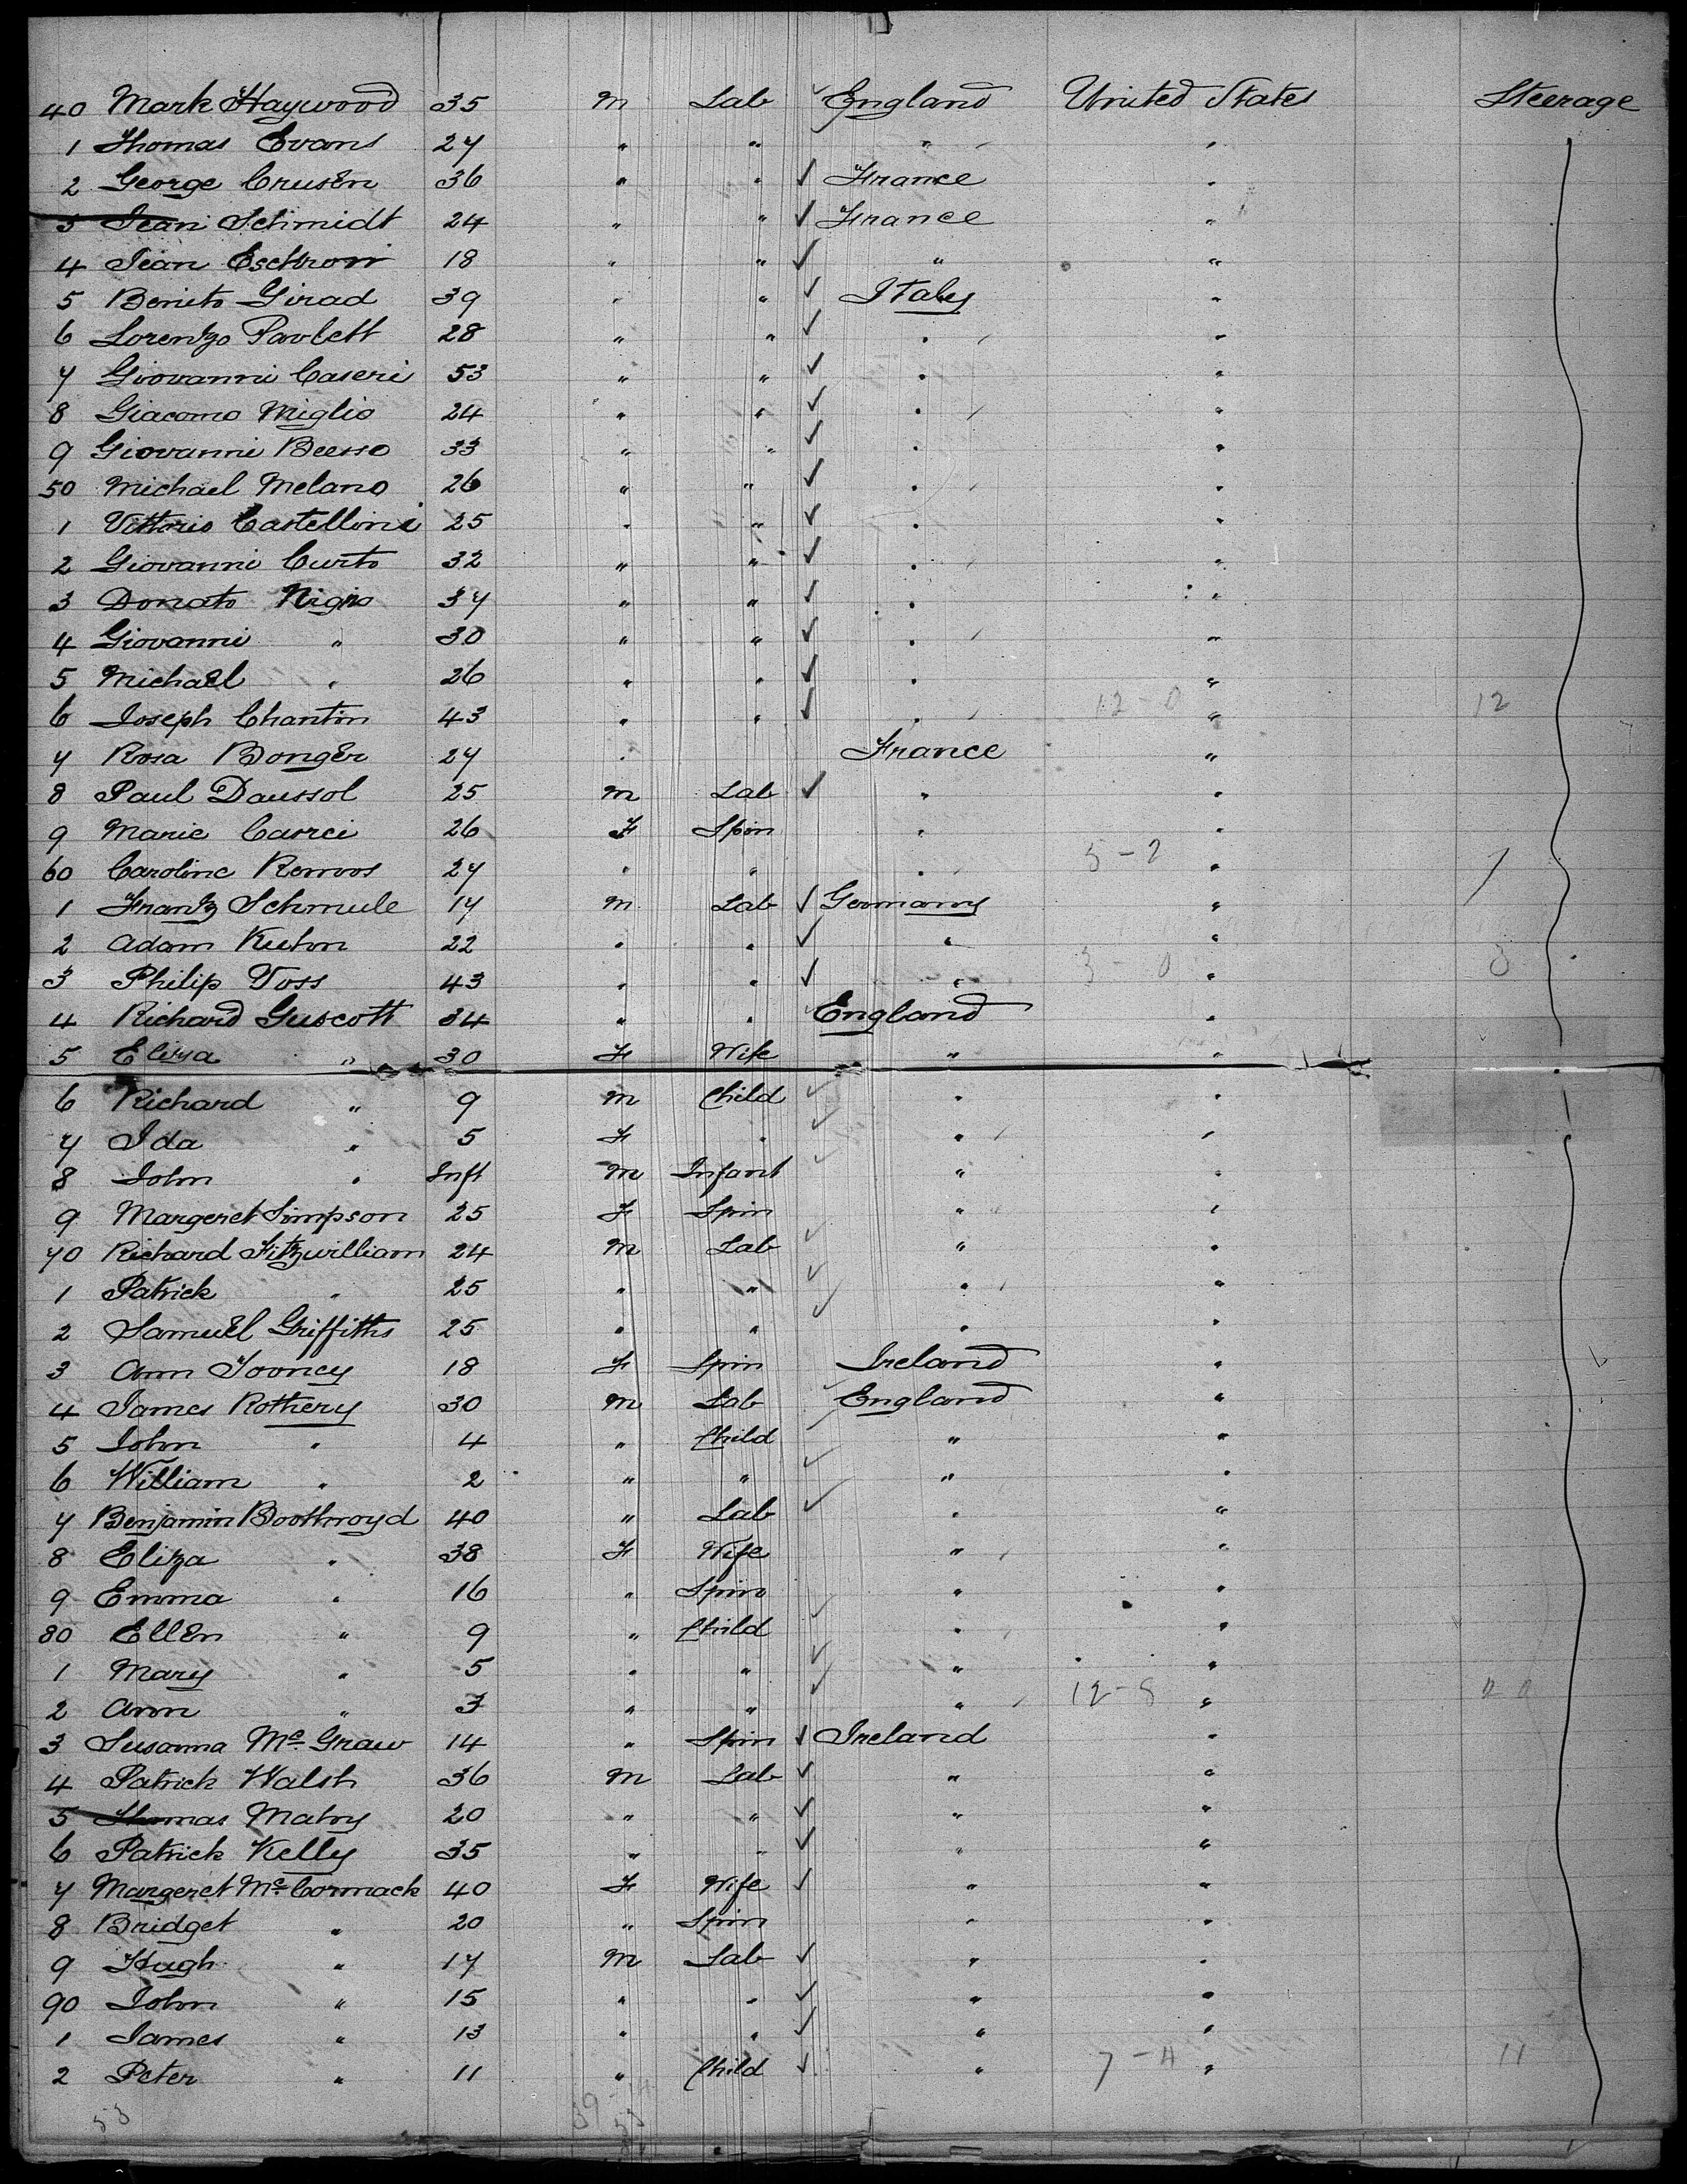 40 Mark Haywood 35 M Lab England United States Steerage
1 Thomas Evans 27 " " " "
2 George Crusen 36 " " France "
3 Jean Schmidt 24 " " France "
4 Jean 18 " " " "
5 Benito Girad 39 " " Italy "
6 Lorentzo Pavlett 28 " " " "
7 Giovanni Caseri 53 " " " "
8 Giacomo Miglio 24 " " " "
9 Giovanni 33 " " " "
50 Michael Melano 26 " " " "
1 Vittorio Castellini 25 " " " "
2 Giovanni Curto 32 " " " "
3 Donato Nigro 37 " " " "
4 Giovanni " 30 " " " "
5 Michael " 26 " " " "
6 Joseph Chantin 43 " " " 12-0 " 12
7 Rosa Bonger 27 " France "
8 Paul Daussol 25 M Lab " "
9 Marie 26 F Spin " "
60 Caroline 27 " " " 5-2 "
1 Frantz Schmule 17 M Lab Germany "
2 Adam Kuhn 22 " " " "
3 Philip Voss 43 " " " 3-0 " 3
4 Richard Guscott 34 " " England "
5 Eliza " 30 F Wife " "
6 Richard " 9 M Child " "
7 Ida " 5 F " " "
8 John " Inft M Infant " "
9 Margeret Simpson 25 F Spin " "
70 Richard Fitzwilliam 24 M Lab " "
1 Patrick " 25 " " " "
2 Samuel Griffiths 25 " " " "
3 Ann Tooney 18 F Spin Ireland "
4 James Rothery 30 M Lab England "
5 John " 4 " Child " "
6 William " 2 " " " "
7 Benjamin Boothroyd 40 " Lab " "
8 Eliza " 38 F Wife " "
9 Emma " 16 " Spin " "
80 Ellen " 9 " Child " "
1 Mary " 5 " " " "
2 Ann " 3 " " " 12-8 "
3 Susanna Mc Graw 14 " Spin Ireland "
4 Patrick Walsh 36 M Lab " "
5 Thomas 20 " " " "
6 Patrick Kelly 35 " " " "
7 Margeret Mc Cormack 40 F Wife " "
8 Bridget " 20 " Spin " "
9 Hugh " 17 M Lab " "
90 John " 15 " " " "
1 James " 13 " " " "
2 Peter " 11 " Child " 7-4 " 11
53